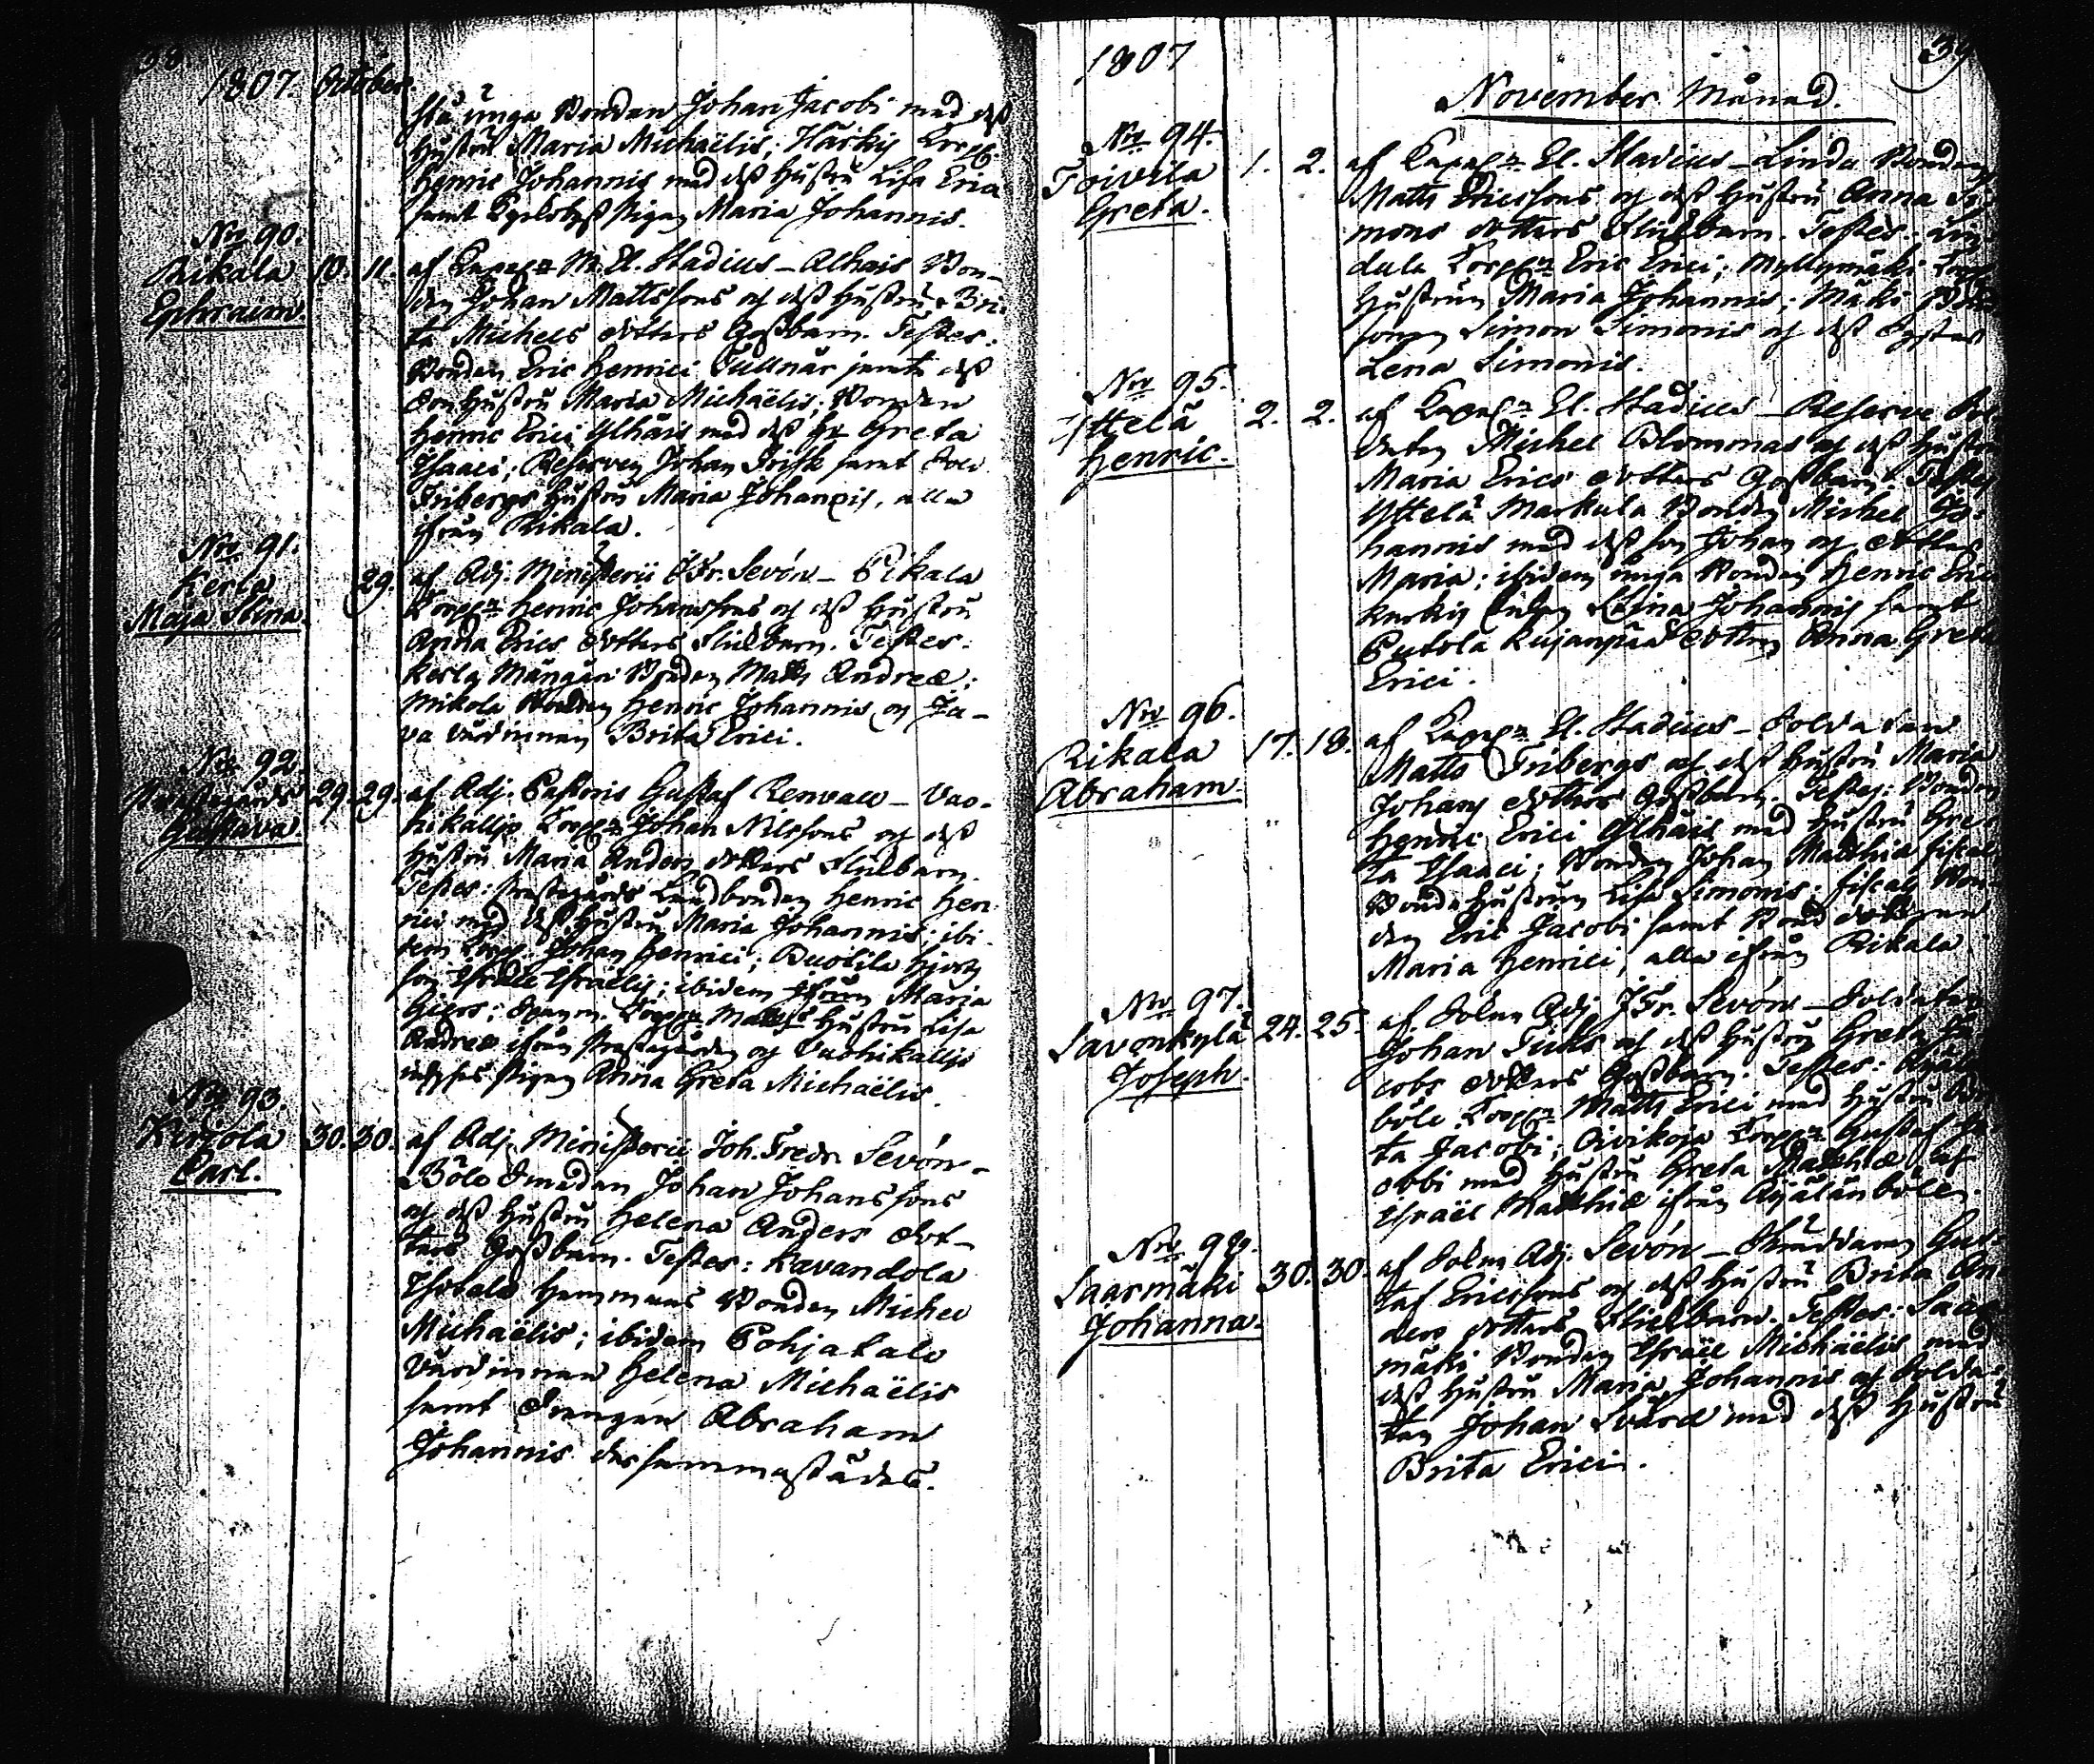 38
1807. October.
stu unga Bonden Johan Jacobi med dess
Hustru Maria Michaëlis; Härkis Torpp.
Henric Johannis med dess Hustru Lisa Erici
samt Pigan Maria Johannis.
No 90.
Rikala 10. 11.
Ephraim.
af Capel:n M. El. Stadius – Alhais Bon-
den Johan Mattssons och dess Hustru Bri-
ta Michels dotters Gossbarn. Testes:
Bonden Eric Henrici Tullnär jemte dess
Hustru Maria Michaëlis; Bonden
Henric Erici Ylhäis med dess H. Greta
Isaaci; Reserven Johan Frisk samt Sold.
Fribergs Hustru Maria Johannis, alla
ifrån Rikala.
No 91.
Kerla 29.
Maja Stina.
af Adj. Ministerii J Fr. Sevón – Pikala
Torpp:n Henric Johanssons och dess Hustru
Anna Erics dotters Flickbarn. Testes:
Kerla Mångäri Bonden Matts Andreæ;
Mikola Bonden Henric Johannis och Ja-
va Värdinnan Brita Erici.
No 92.
Prästegårds 29. 29.
Gustava.
af Adj. Pastoris Gustaf Renvall – Vao-
hikallijo Torpp:n Johan Nilssons och dess
Hustru Maria Anders dotters Flickbarn.
Testes: Prästegårds Landbonden Henric Hen-
rici med dess Hustru Maria Johannis; ibi-
dem Torpp. Johan Henrici; Israël Israëlis; ibidem Maria
Torpp:n Hustru Lisa
Andreæ ifrån Prästegården och Vaohikallijo
Pigan Anna Greta Michaëlis.
No 93.
Kerjola 30. 30.
Carl.
af Adj. Ministerii Joh. Fredr. Sevón –
Böle Smeden Johan Johanssons
och dess Hustru Helena Anders dot-
ters Gossbarn. Testes: Kavandola
Isotalo Hemmans Bonden Michel
Michaëlis; ibidem Pohjatalo
Värdinnan Helena Michaëlis
samt Drengen Abraham
Johannis dersammastädes.
39
1807
November Månad.
No 94.
Toivila 1. 2.
Greta.
af Capel:n El. Stadius – Linda Bonden
Matts Ericssons och dess Hustru Anna Si-
mons dotters Flickbarn. Testes: Lin-
dula Torpp:n Eric Erici; Myllymäki Torpp.
Hustrun Maria Johannis; Mäki Bond
sonen Simon Simonis och dess Syster
Lena Simonis.
No 95.
Yttelä 2. 2.
Henric.
af Capel:n El. Stadius – Reserve Sol-
daten Michel Blommas och dess Hustru
Maria Erics dotters Gossbarn. Testes
Yttelä Markula Bonden Michel Jo-
hannis med dess son Johan och dotter
Maria; ibidem unga Bonden Henric Erici
Kurkis Enkan Stina Johannis samt
Putola Kujanpää dottren Anna Greta
Erici.
No 96.
Rikala 17. 18.
Abraham.
af Capel:n El. Stadius – Soldaten
Matts Fribergs och dess Hustru Maria
Johans dotters Gossbarn. Testes: Bonden
Henric Erici Ylhäis med Hustru Gre-
ta Isaaci; Bonden Johan Matthiæ
Bonde Hustrun Lisa Simonis; Bon-
den Eric Jacobi samt Bond dottren
Maria Henrici, alla ifrån Rikala.
No 97.
Savonkylä 24. 25.
Joseph.
af Adj. J Fr. Sevón – Soldaten
Johan Tulls och dess Hustru Greta Ja-
cobs dotters Gossbarn. Testes:
böle Torpp:n Matts Erici med Hustru Bri-
ta Jacobi; Oivikoja Torpp:n Gustaf Ja-
cobi med Hustru Greta Matthiæ och
Israël Matthiæ ifrån Äijälänböle.
No 98.
Saarmäki 30. 30.
Johanna.
af Adj. Sevón – Skräddaren Gus-
taf Ericssons och dess Hustru Brita An-
ders dotters Flickbarn. Testes: Saar-
mäki Bonden Israël Michaëlis med
dess Hustru Maria Johannis och Solda-
ten Johan Svärd med dess Hustru
Brita Erici.